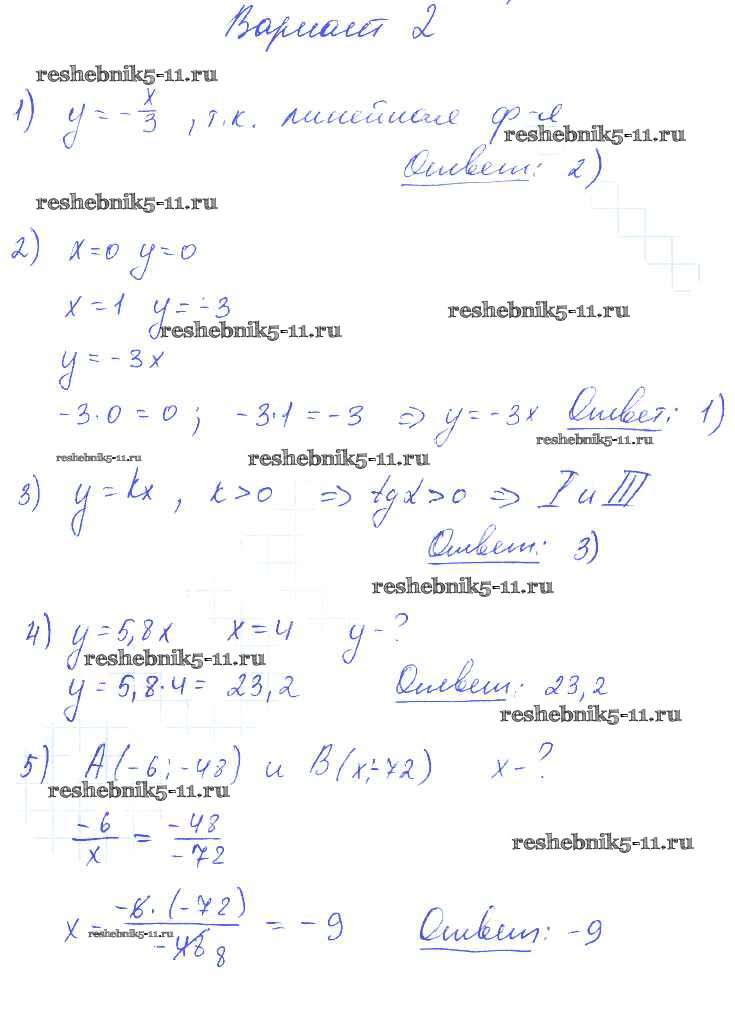 Вариант 2
reshebnik5-11.ru
1) y = -x/3 , т.к. линейная ф-я
reshebnik5-11.ru
Ответ: 2)
reshebnik5-11.ru
2) x=0 y=0
x=1 y=-3
reshebnik5-11.ru
reshebnik5-11.ru
y=-3x
-3·0=0; -3·1=-3 ⇒ y=-3x Ответ: 1)
reshebnik5-11.ru
reshebnik5-11.ru
reshebnik5-11.ru
3) y=kx, k>0 ⇒ tgα>0 ⇒ I и III
Ответ: 3)
reshebnik5-11.ru
4) y=5,8x x=4 y-?
reshebnik5-11.ru
y=5,8·4= 23,2 Ответ: 23,2
reshebnik5-11.ru
5) A(-6;-48) и B(x;-72) x-?
reshebnik5-11.ru
-6/x = -48/-72
reshebnik5-11.ru
x = -6·(-72)/-48 8 = -9 Ответ: -9
reshebnik5-11.ru